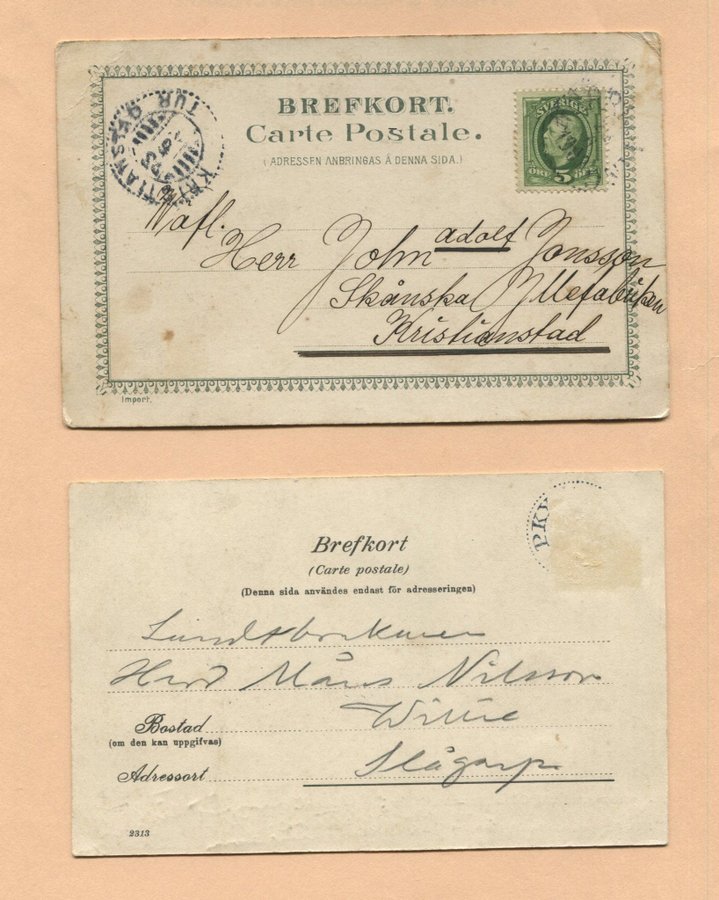 BREFKORT.
Carte Postale.
(ADRESSEN ANBRINGAS Å DENNA SIDA.)
SVERIGE
ÖRE 5 ÖRE
KRISTIANSTAD
TUR
Herr John Adolf Jonsson
Skånska Yllefabriken
Kristianstad
Import.
PKP
Brefkort
(Carte postale)
(Denna sida användes endast för adresseringen)
Herr Måns Nilsson
Bostad
(om den kan uppgifvas)
Adressort Slågarp
2313